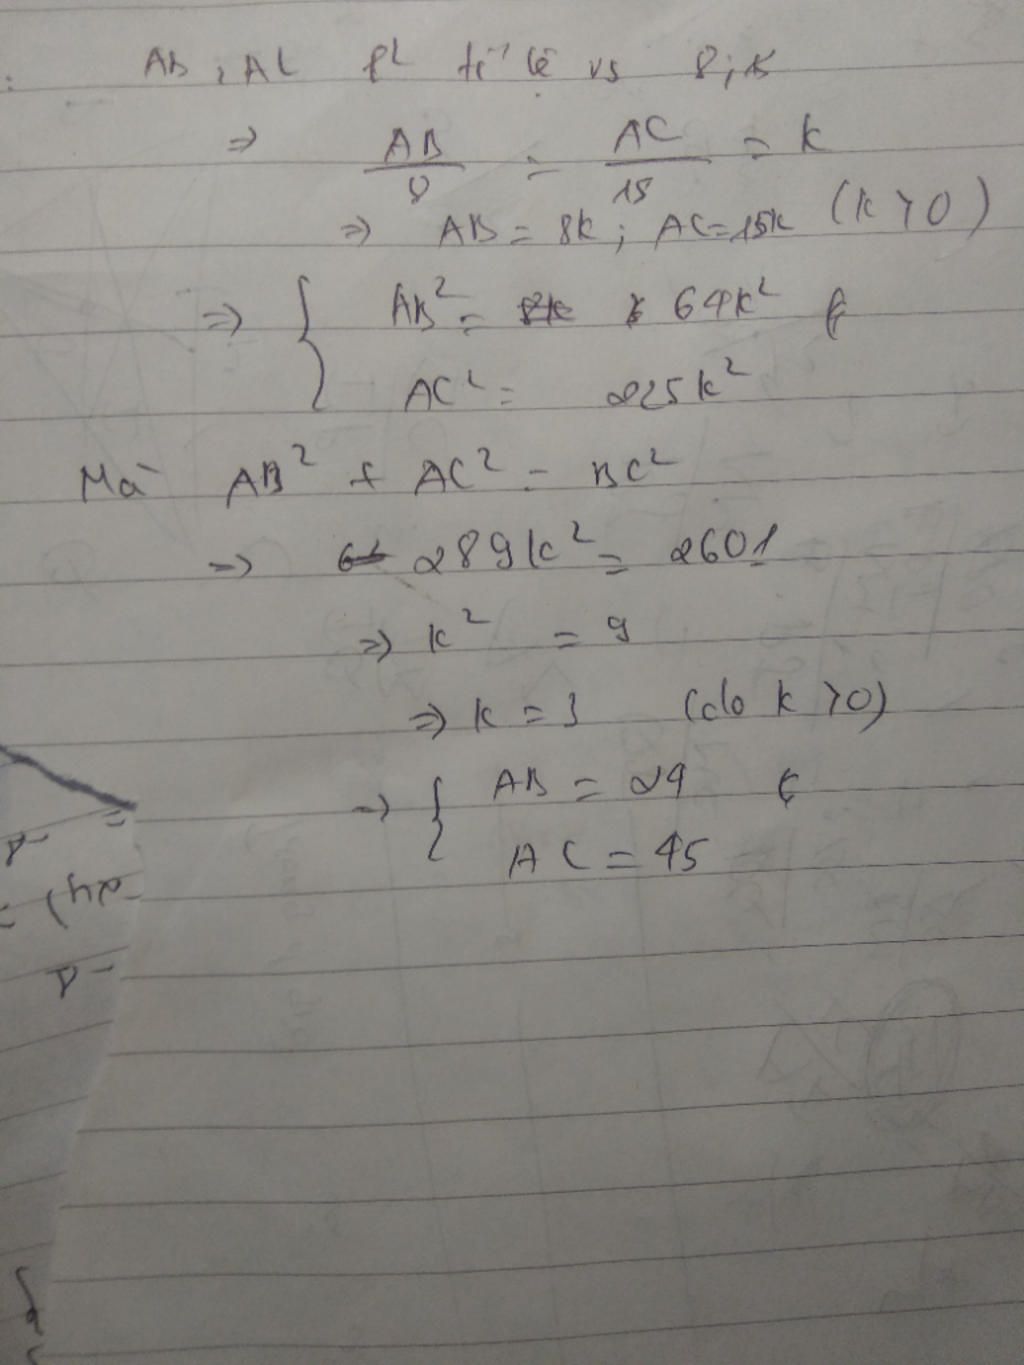 AB ; AC tỉ lệ vs 8 ; 15
=> AB/8 = AC/15 = k
=> AB = 8k ; AC = 15k (k > 0)
=> { AB² = 64k²
AC² = 225k²
Mà AB² + AC² = BC²
=> 289k² = 2601
=> k² = 9
=> k = 3 (do k > 0)
=> { AB = 24
AC = 45